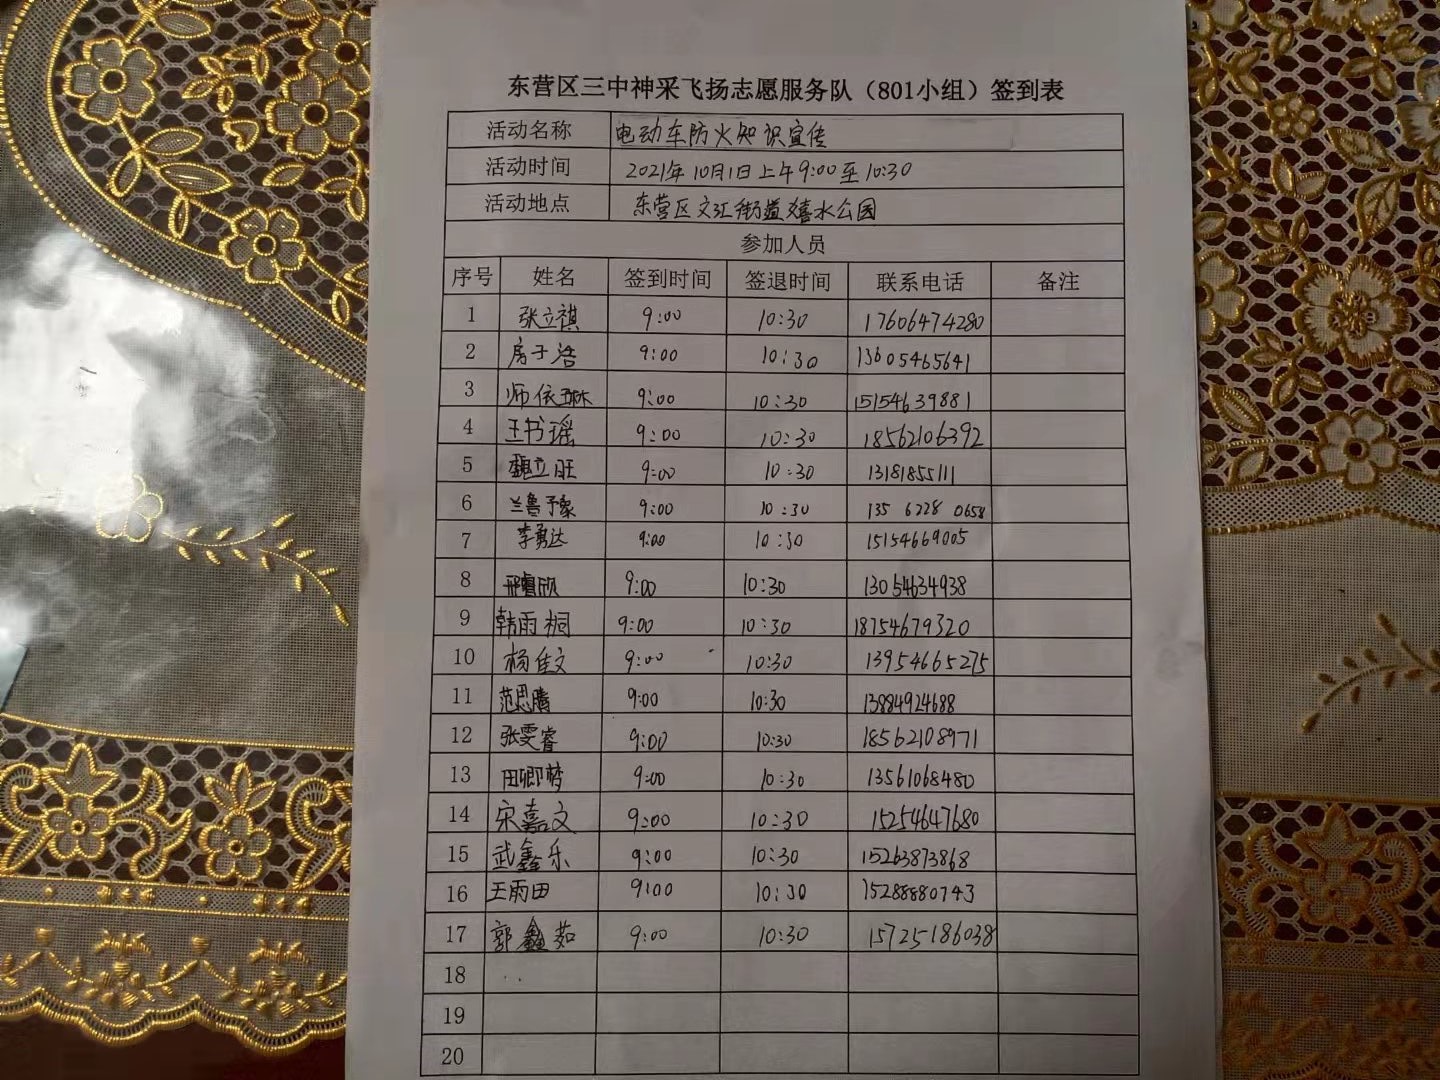 东营区三中神采飞扬志愿服务队（801小组）签到表
活动名称 电动车防火知识宣传
活动时间 2021年10月1日上午9:00至10:30
活动地点 东营区文汇街道嬉水公园
参加人员
序号 姓名 签到时间 签退时间 联系电话 备注
1 张立祺 9:00 10:30 17606474280
2 房子浩 9:00 10:30 13605465641
3 师依琳 9:00 10:30 15154639881
4 王书瑶 9:00 10:30 18562106392
5 魏立旺 9:00 10:30 13181855111
6 兰鲁予豪 9:00 10:30 135 6228 0658
7 李勇达 9:00 10:30 15154669005
8 邢睿欣 9:00 10:30 13054634938
9 韩雨桐 9:00 10:30 18754679320
10 杨佳文 9:00 10:30 13954665275
11 范思腾 9:00 10:30 13884924688
12 张雯睿 9:00 10:30 18562108971
13 田卿梦 9:00 10:30 13561068480
14 宋嘉文 9:00 10:30 15254647680
15 武鑫乐 9:00 10:30 15263873868
16 王雨田 9:00 10:30 15288880743
17 郭鑫茹 9:00 10:30 15725186038
18
19
20